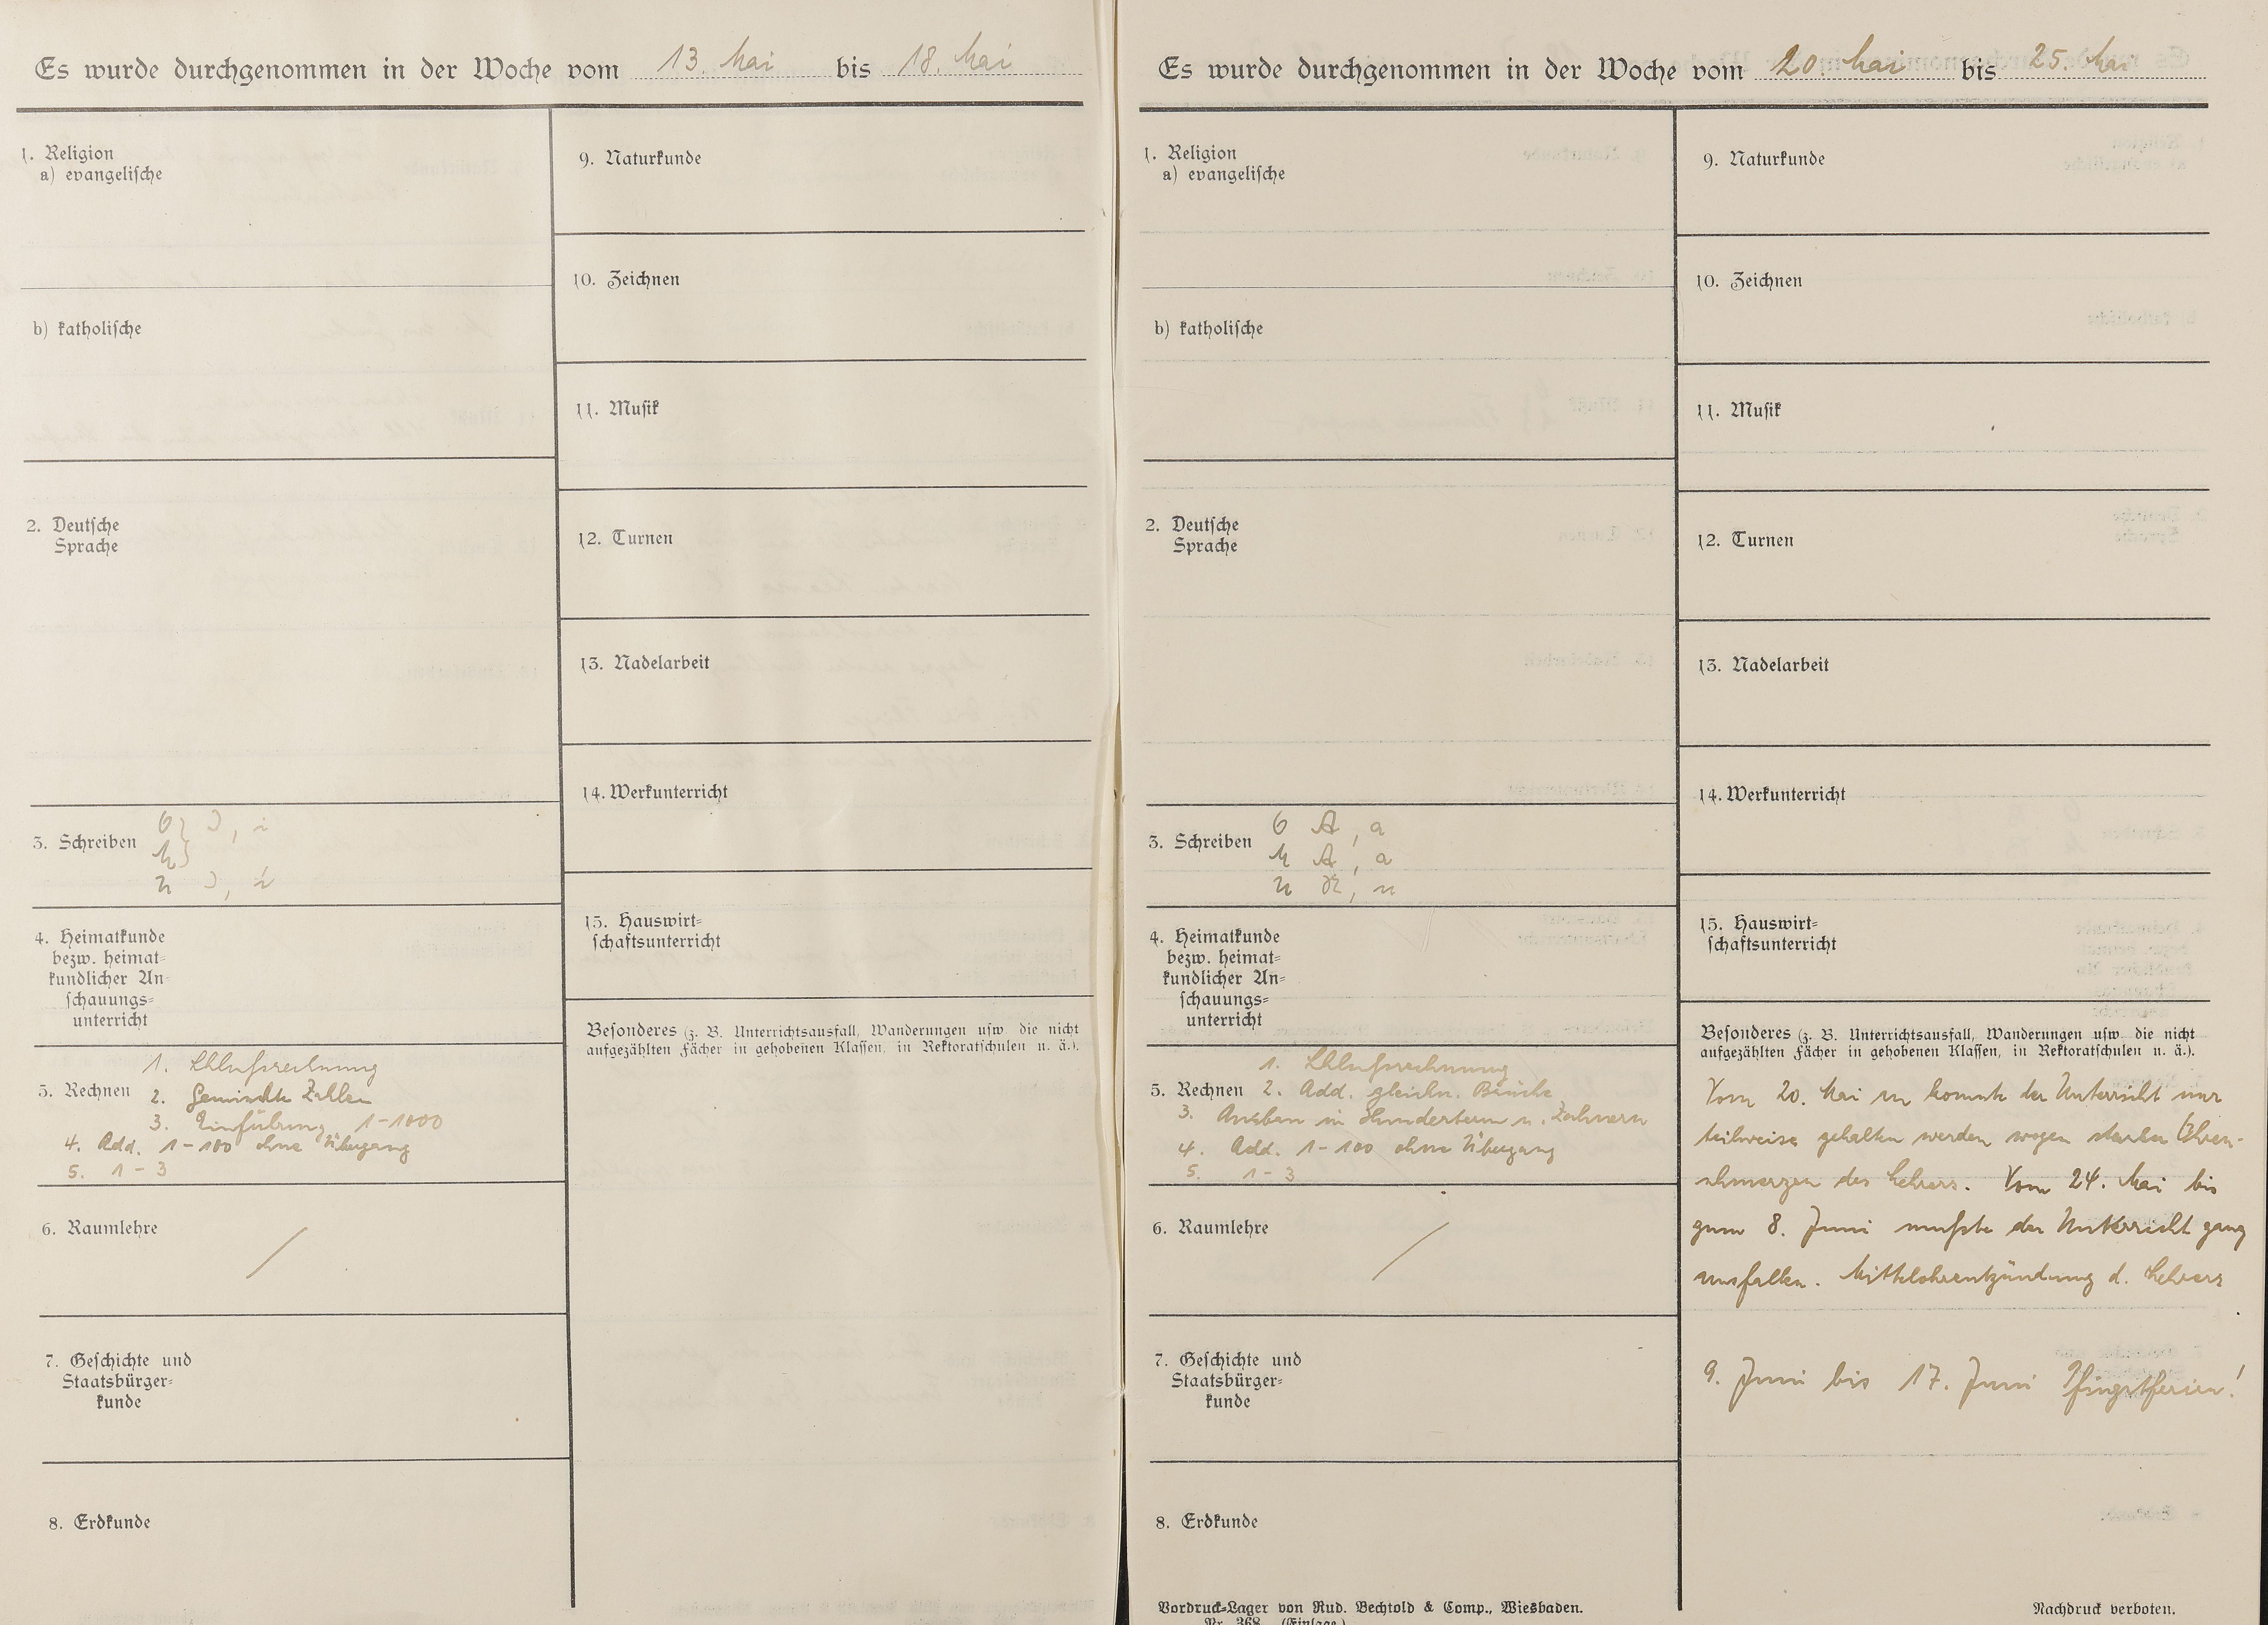 Es wurde durchgenommen in der Woche vom 13. Mai bis 18. Mai
1. Religion
a) evangelische
b) katholische
2. Deutsche
Sprache
3. Schreiben O } J, i
M }
U J, i
4. Heimatkunde
bezw. heimat-
kundlicher An-
schauungs-
unterricht
5. Rechnen 1. Schlußrechnung
2. Gemischte Zahlen
3. Einführung 1-1000
4. Add. 1-100 ohne Übergang
5. 1-3
6. Raumlehre /
7. Geschichte und
Staatsbürger-
kunde
8. Erdkunde
9. Naturkunde
10. Zeichnen
11. Musik
12. Turnen
13. Nadelarbeit
14. Werkunterricht
15. Hauswirt-
schaftsunterricht
Besonderes (z. B. Unterrichtsausfall, Wanderungen usw. die nicht
aufgezählten Fächer in gehobenen Klassen, in Rektoratschulen u. ä.).
Es wurde durchgenommen in der Woche vom 20. Mai bis 25. Mai
1. Religion
a) evangelische
b) katholische
2. Deutsche
Sprache
3. Schreiben O A, a
M A, a
U N, n
4. Heimatkunde
bezw. heimat-
kundlicher An-
schauungs-
unterricht
5. Rechnen 1. Schlußrechnung
2. Add. gleichn. Brüche
3. Ausbau in Hundertern u. Zehnern
4. Add. 1-100 ohne Übergang
5. 1-3
6. Raumlehre /
7. Geschichte und
Staatsbürger-
kunde
8. Erdkunde
Vordruck-Lager von Rud. Bechtold & Comp., Wiesbaden.
Nr. 368. (Einlage.)
9. Naturkunde
10. Zeichnen
11. Musik
12. Turnen
13. Nadelarbeit
14. Werkunterricht
15. Hauswirt-
schaftsunterricht
Besonderes (z. B. Unterrichtsausfall, Wanderungen usw. die nicht
aufgezählten Fächer in gehobenen Klassen, in Rektoratschulen u. ä.).
Vom 20. Mai an konnte der Unterricht nur
teilweise gehalten werden wegen starker Ohren-
schmerzen des Lehrers. Vom 24. Mai bis
zum 8. Juni mußte der Unterricht ganz
ausfallen. Mittelohrentzündung d. Lehrers
9. Juni bis 17. Juni Pfingstferien!
Nachdruck verboten.